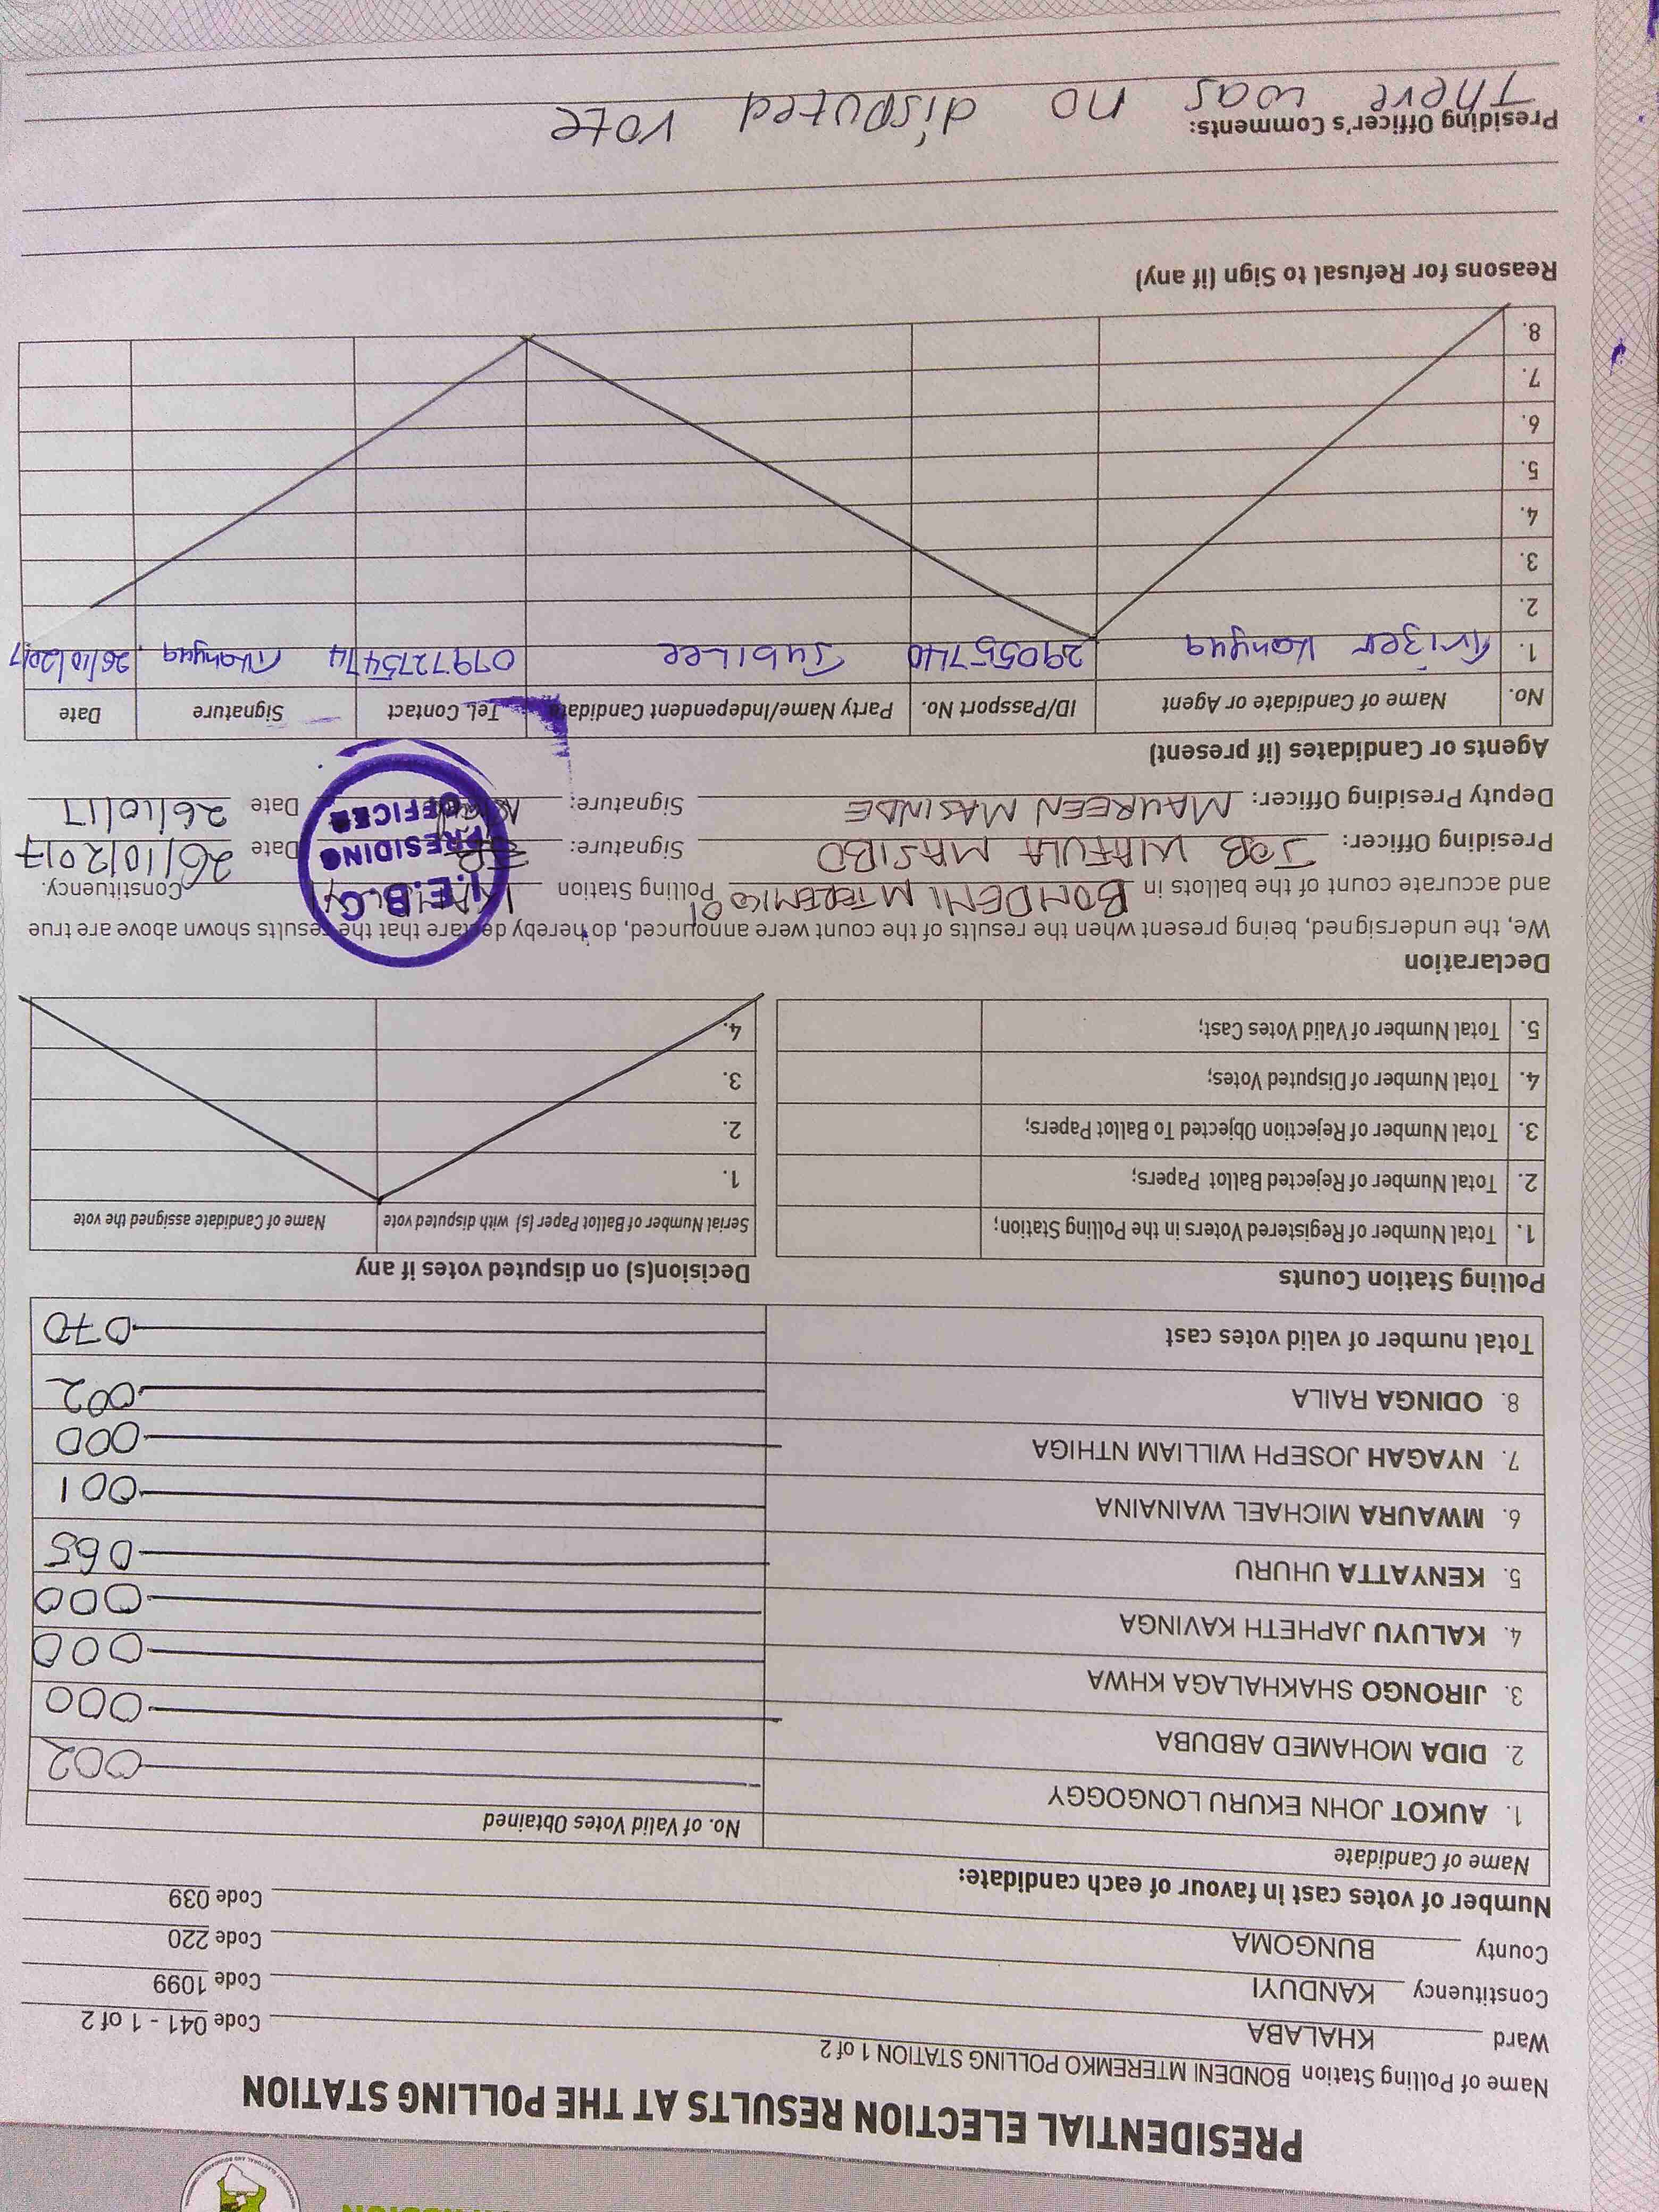 PRESIDENTIAL ELECTION RESULTS AT THE POLLING STATION
Name of Polling Station BONDENI MTEREMKO POLLING STATION 1 of 2 Code 041 - 1 of 2
Ward KHALABA Code 1099
Constituency KANDUYI Code 220
County BUNGOMA Code 039
Number of votes cast in favour of each candidate:
Name of Candidate No. of Valid Votes Obtained
1. AUKOT JOHN EKURU LONGOGGY 002
2. DIDA MOHAMED ABDUBA 000
3. JIRONGO SHAKHALAGA KHWA 000
4. KALUYU JAPHETH KAVINGA 000
5. KENYATTA UHURU 065
6. MWAURA MICHAEL WAINAINA 001
7. NYAGAH JOSEPH WILLIAM NTHIGA 000
8. ODINGA RAILA 002
Total number of valid votes cast 070
Polling Station Counts
1. Total Number of Registered Voters in the Polling Station;
2. Total Number of Rejected Ballot Papers;
3. Total Number of Rejection Objected To Ballot Papers;
4. Total Number of Disputed Votes;
5. Total Number of Valid Votes Cast;
Decision(s) on disputed votes if any
Serial Number of Ballot Paper (s) with disputed vote Name of Candidate assigned the vote
1.
2.
3.
4.
Declaration
We, the undersigned, being present when the results of the count were announced, do hereby declare that the results shown above are true
and accurate count of the ballots in BONDENI MTEREMKO 01 Polling Station Constituency.
Presiding Officer: JOB WAFULA MASIBO Signature: Date 26/10/2017
Deputy Presiding Officer: MAUREEN MASINDE Signature: Date 26/10/17
I.E.B.C
PRESIDING
OFFICER
Agents or Candidates (if present)
No. Name of Candidate or Agent ID/Passport No. Party Name/Independent Candidate Tel. Contact Signature Date
1. Kanyua 29055740 Jubilee 0797275474 26/10/2017
2.
3.
4.
5.
6.
7.
8.
Reasons for Refusal to Sign (if any)
Presiding Officer's Comments:
There was no disputed vote